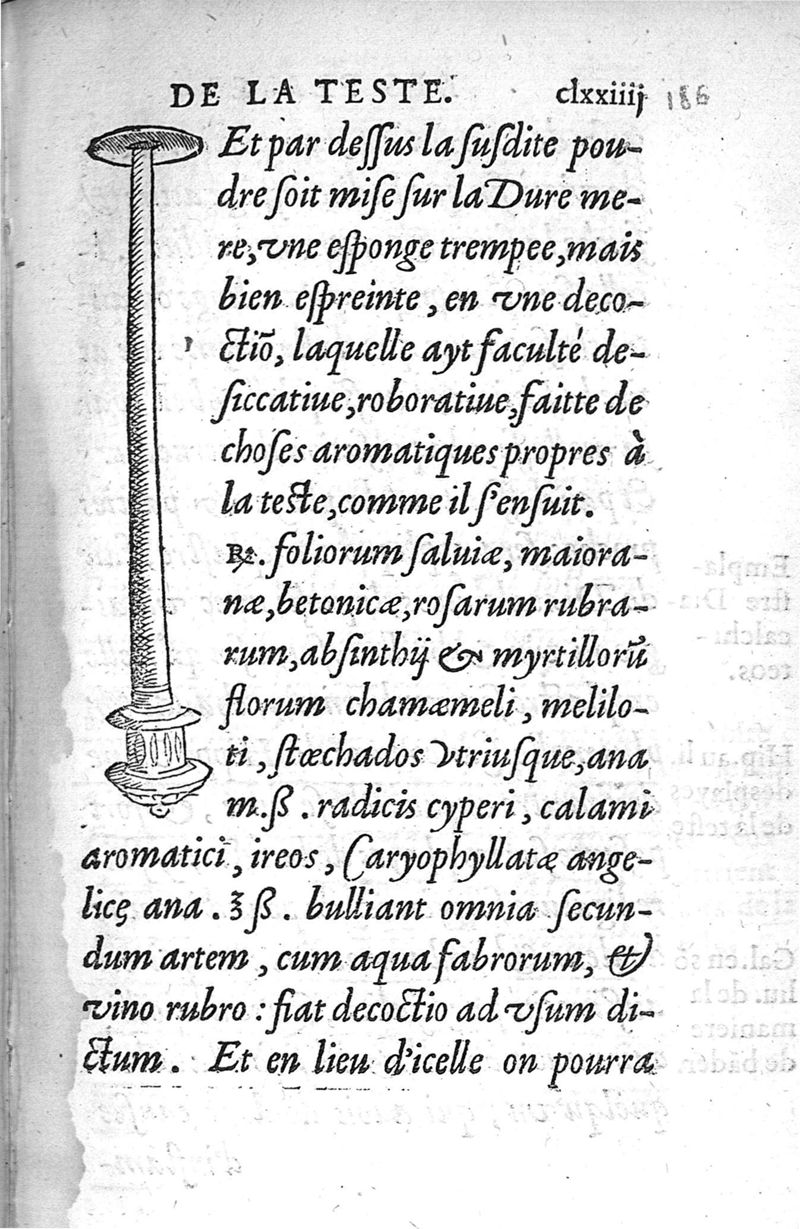 DE LA TESTE. clxxiiij 186
Et par dessus la susdite pou-
dre soit mise sur la Dure me-
re, vne esponge trempee, mais
bien espreinte, en vne deco-
ctiõ, laquelle ayt faculté de-
siccatiue, roboratiue, faitte de
choses aromatiques propres à
la teste, comme il s'ensuit.
℞. foliorum saluiæ, maiora-
næ, betonicæ, rosarum rubra-
rum, absinthij & myrtillorũ
florum chamæmeli, melilo-
ti, stœchados vtriusque, ana
m.ß. radicis cyperi, calami
aromatici, ireos, Caryophyllatæ ange-
licę ana. ʒ ß. bulliant omnia secun-
dum artem, cum aqua fabrorum, &
vino rubro : fiat decoctio ad vsum di-
ctum. Et en lieu d'icelle on pourra
Empla-
stre Dia-
calchi-
teos.
Hip. au li.
des playes
de la teste.
Gal. en sõ
liu. de la
maniere
de bãder.